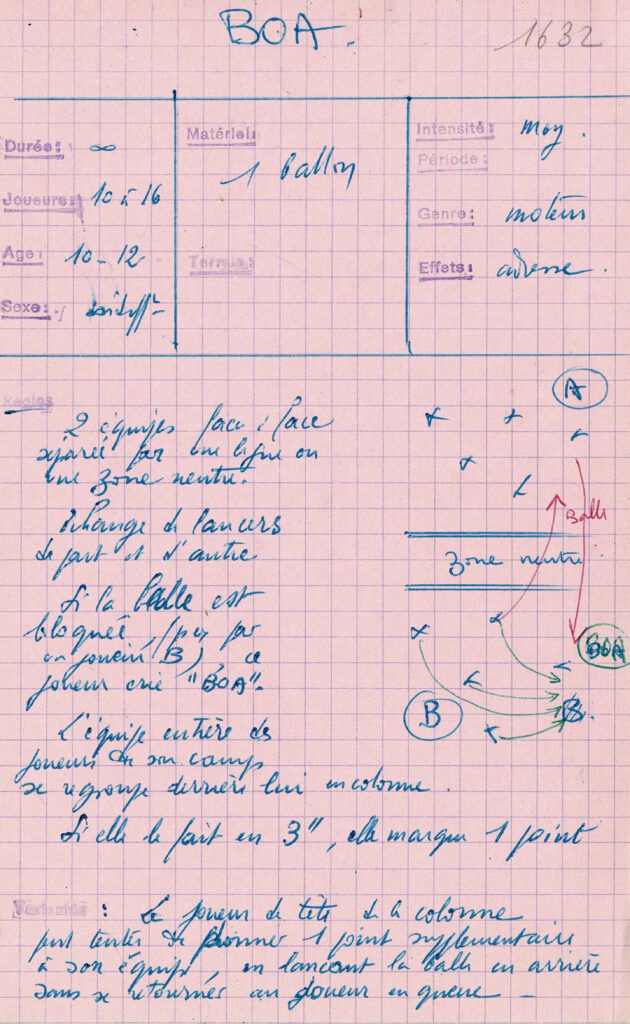 BOA.
1632
Durée: ∞
Joueurs: 10 à 16
Age: 10-12
Sexe: indiff
Matériel:
1 ballon
Terrain:
Intensité: moy.
Période:
Genre: moteur
Effets: adresse.
Règles
2 équipes face à face
séparée par une ligne ou
une zone neutre.
Echange de lancers
de part et d'autre
Si la balle est
bloquée, (pex par
un joueur B), ce
joueur crie "BOA".
L'équipe entière des
joueurs de son camp
se regroupe derrière lui en colonne.
Si elle le fait en 3", elle marque 1 point
A
Balle
Zone neutre
BOA
B
B.
Variantes: Le joueur de tête de la colonne
peut tenter de donner 1 point supplémentaire
à son équipe, en lancant la balle en arrière
sans se retourner au joueur en queue -